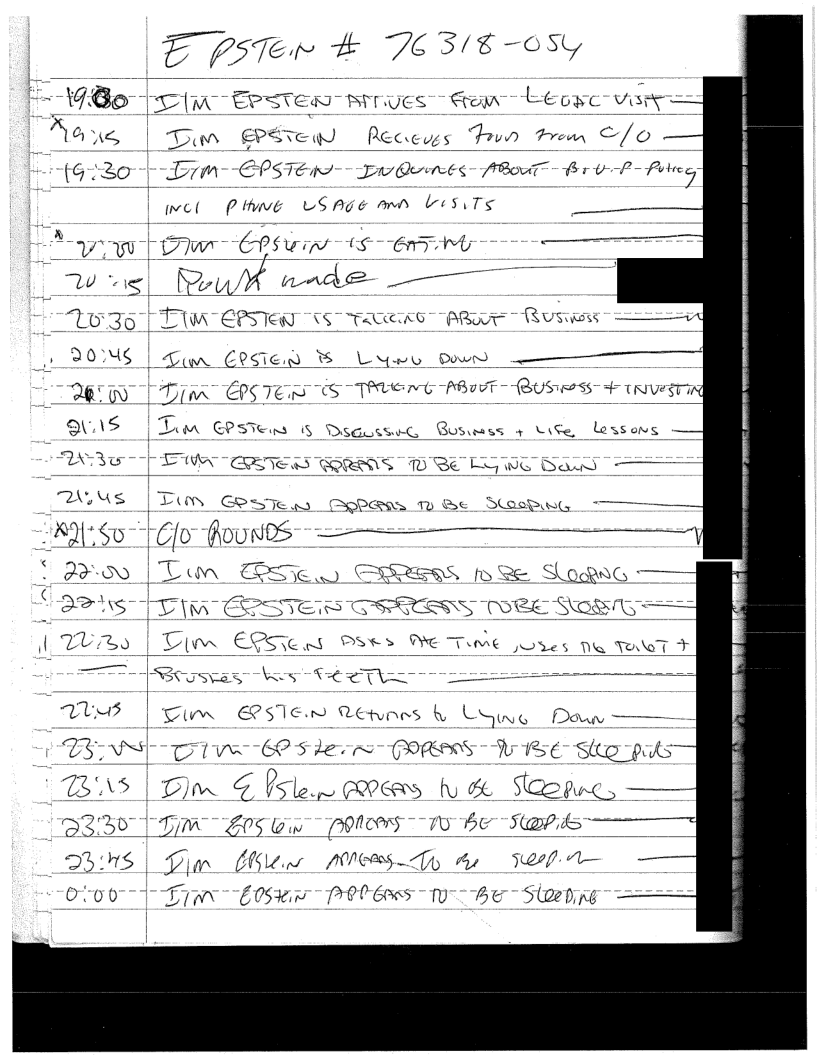 EPSTEIN # 76318-054
19:00 I/M EPSTEIN ARRIVES FROM LEGAL VISIT
*19:15 I/M EPSTEIN RECIEVES FOOD FROM C/O
19:30 I/M EPSTEIN INQUIRES ABOUT B.O.P Policy
INCl PHONE USAGE AND VISITS
* 20:00 I/M EPSTEIN IS EATING
20:15 Round made
20:30 I/M EPSTEIN IS TALKING ABOUT BUSINESS
20:45 I/M EPSTEIN IS LYING DOWN
21:00 I/M EPSTEIN IS TALKING ABOUT BUSINESS + INVESTING
21:15 I/M EPSTEIN IS DISCUSSING BUSINESS + LIFE LESSONS
21:30 I/M EPSTEIN APPEARS TO BE LYING DOWN
21:45 I/M EPSTEIN APPEARS TO BE SLEEPING
*21:50 C/O ROUNDS
22:00 I/M EPSTEIN APPEARS TO BE SLEEPING
22:15 I/M EPSTEIN APPEARS TO BE SLEEPING
22:30 I/M EPSTEIN ASKS THE TIME, USES THE TOILET +
BRUSHES his TEETH
22:45 I/M EPSTEIN RETURNS to LYING DOWN
23:00 I/M EPSTEIN APPEARS TO BE SLEEPING
23:15 I/M EPSTEIN APPEARS to BE SLEEPING
23:30 I/M EPSTEIN APPEARS TO BE SLEEPING
23:45 I/M EPSTEIN APPEARS TO BE SLEEPING
0:00 I/M EPSTEIN APPEARS TO BE SLEEPING